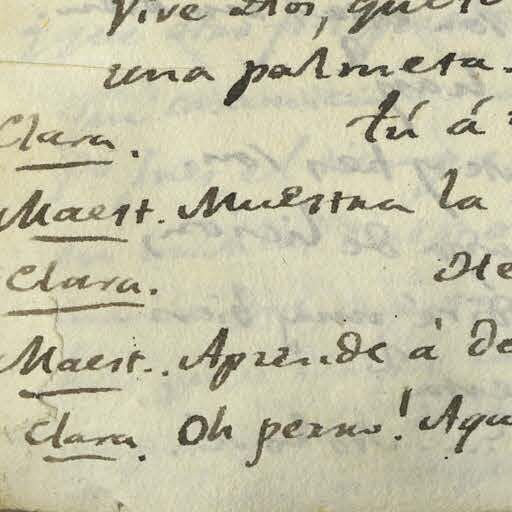 Vive Dios, que te
una palmeta.
Clara. tú á
Maest. Muestra la
Clara. He
Maest. Aprende á de
Clara. Oh perro! Aqu